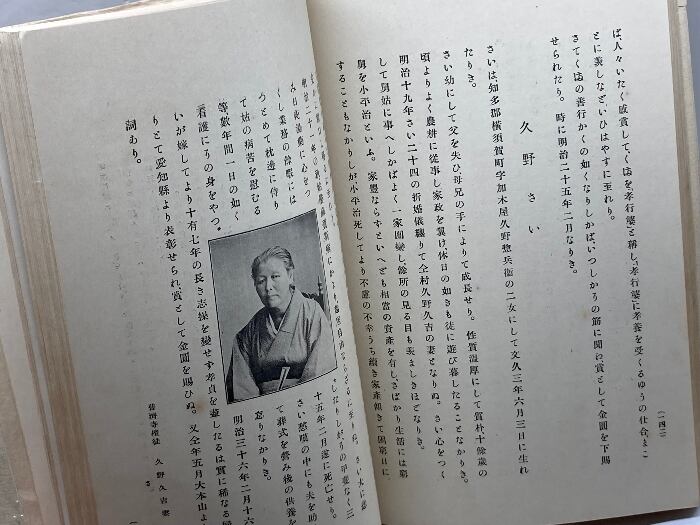 ば、人々いたく感賞して、くほを、孝行婆と稱し、孝行婆に孝養を受くるゆうの仕合、まこ
とに羨しなど、いひはやすに至れり。
さてくほの善行かくの如くなりしかば、いつしかうの筋に聞れ、賞として金圓を下賜
せられたり。時に明治二十五年二月なりき。
(一四二)
久野さい
さいは、知多郡横須賀町字加木屋久野惣兵衞の二女にして文久三年六月三日に生れ
たりき。
さい幼にして父を失ひ母兄の手によりて成長せり。性質温厚にして質朴十餘歳の
頃よりよく農耕に從事し家政を翼け、休日の如きも徒に遊び暮したることなかりき。
明治十九年さい二十四の折、婚儀纏りて仝村久野久吉の妻となりぬ。さい心をつく
して舅姑に事へしかばよく一家團欒し、餘所の見る目も羨ましきほどなりき。
舅を小平治といふ。家豐ならずといへども相當の資産を有し、さばかり生活には窮
することもなかりしが小平治死してより不慮の不幸うち續き家産傾きて困窮日に
心をつ
くし業務の餘暇には
つとめて枕邊に侍り
て姑の病苦を慰むる
等數年間一日の如く
看護にうの身をやつ
十五年二月遂に死亡せり。
さい悲嘆の中にも夫を助
て葬式を營み後の供養を
怠りなかりき。
明治三十六年二月十六
いが嫁してより十有七年の長き志操を變せず孝貞を盡したるは實に稀なる
りとて愛知縣より表彰せられ、賞として金圓を賜ひぬ。又仝年五月大本山よ
詞あり。
久野久吉妻
さ